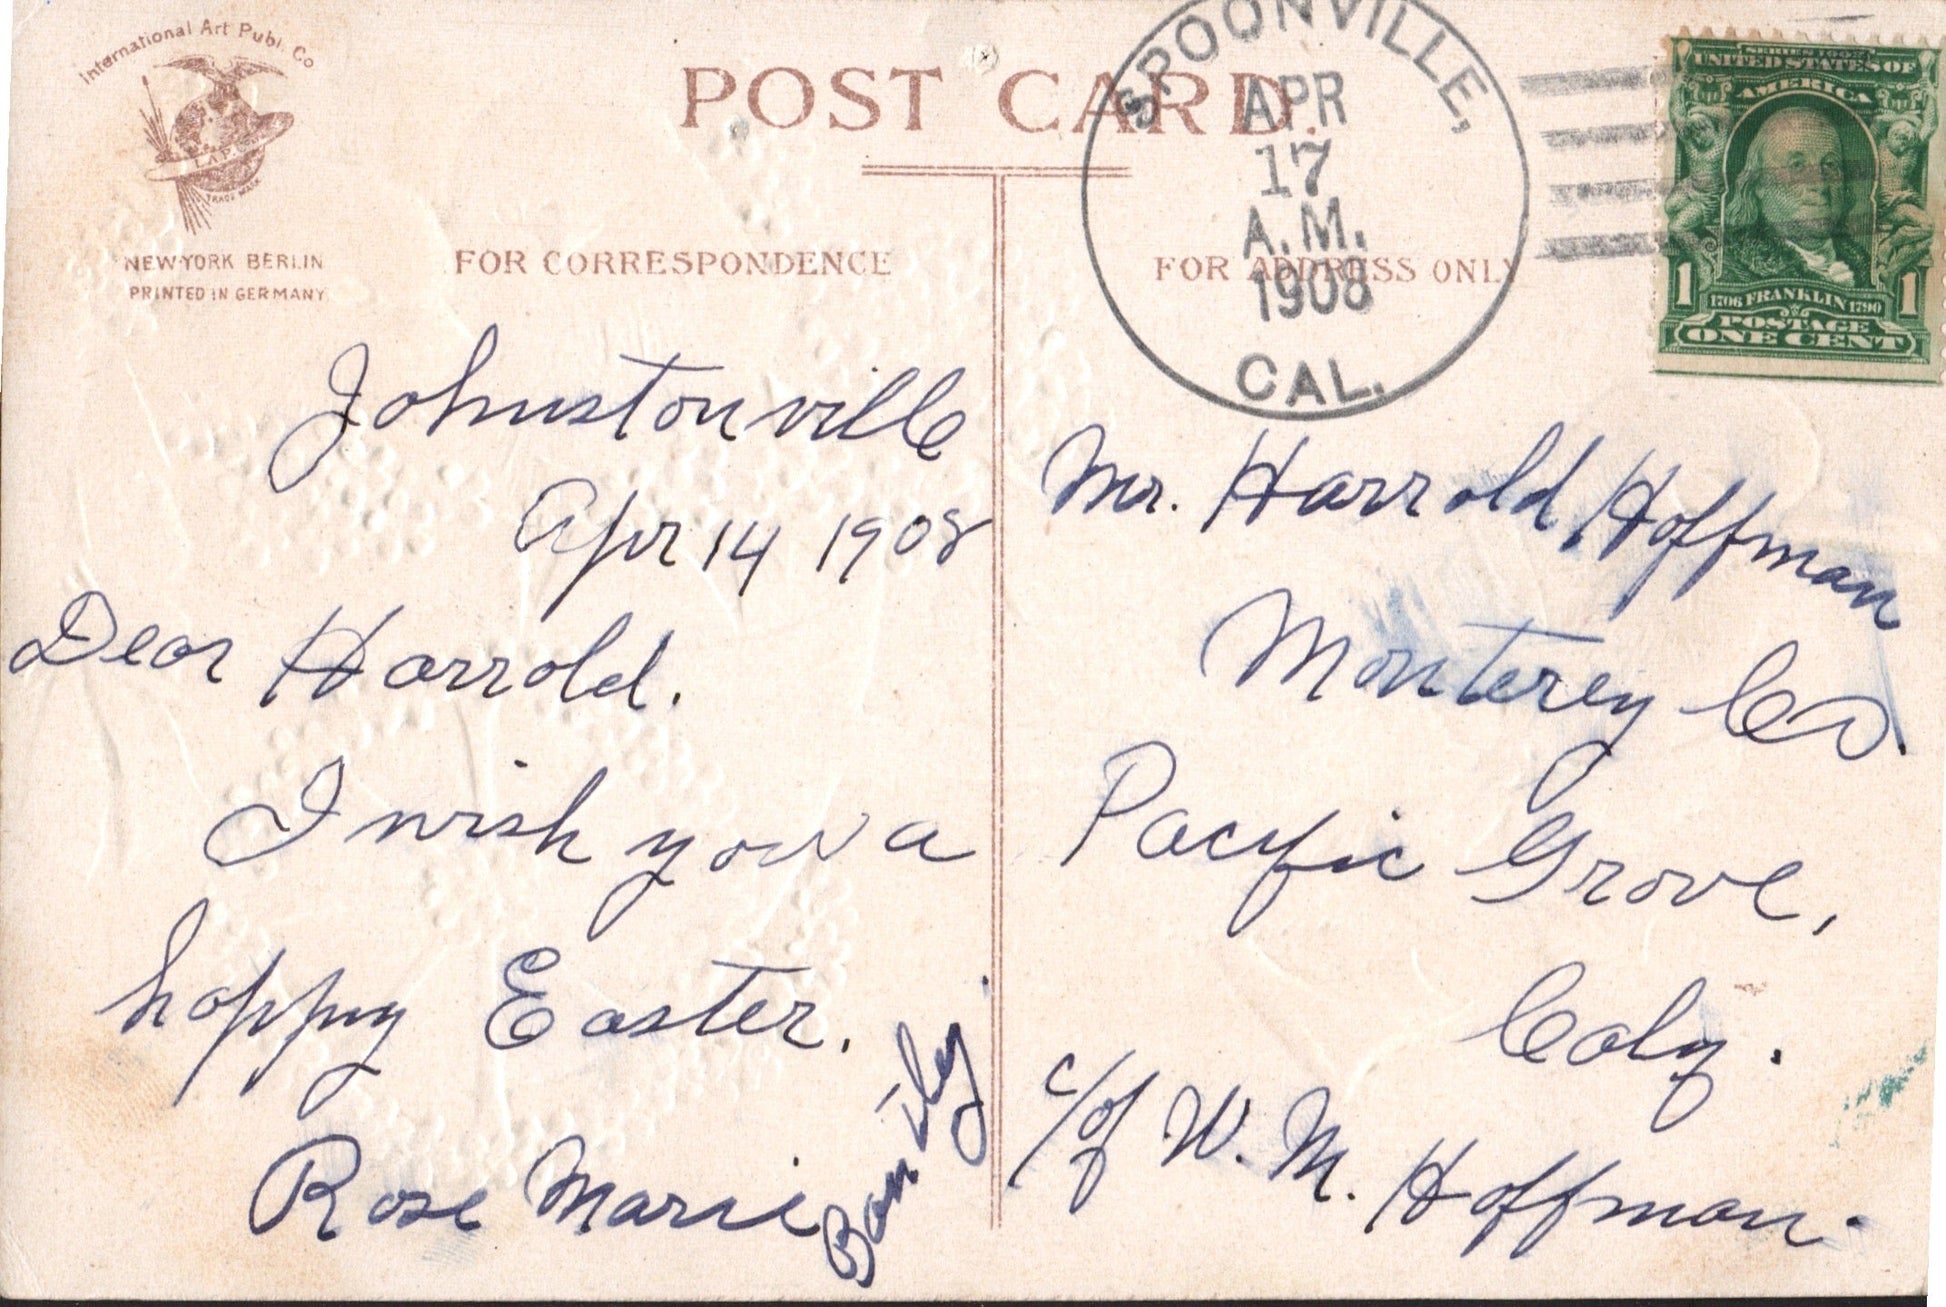 International Art Publ. Co
TRADE MARK
NEW-YORK BERLIN
PRINTED IN GERMANY
POST CARD.
FOR CORRESPONDENCE
FOR ADDRESS ONLY
SPOONVILLE,
APR
17
A.M.
1908
CAL.
SERIES 1902
UNITED STATES OF
AMERICA
1 1
1706 FRANKLIN 1790
POSTAGE
ONE CENT
Johnstonville
Apr 14 1908
Dear Harrold.
I wish you a
happy Easter.
Rose Marie
Mr. Harrold Hoffman
Monterey Co.
Pacific Grove,
c/of W. M. Hoffman.